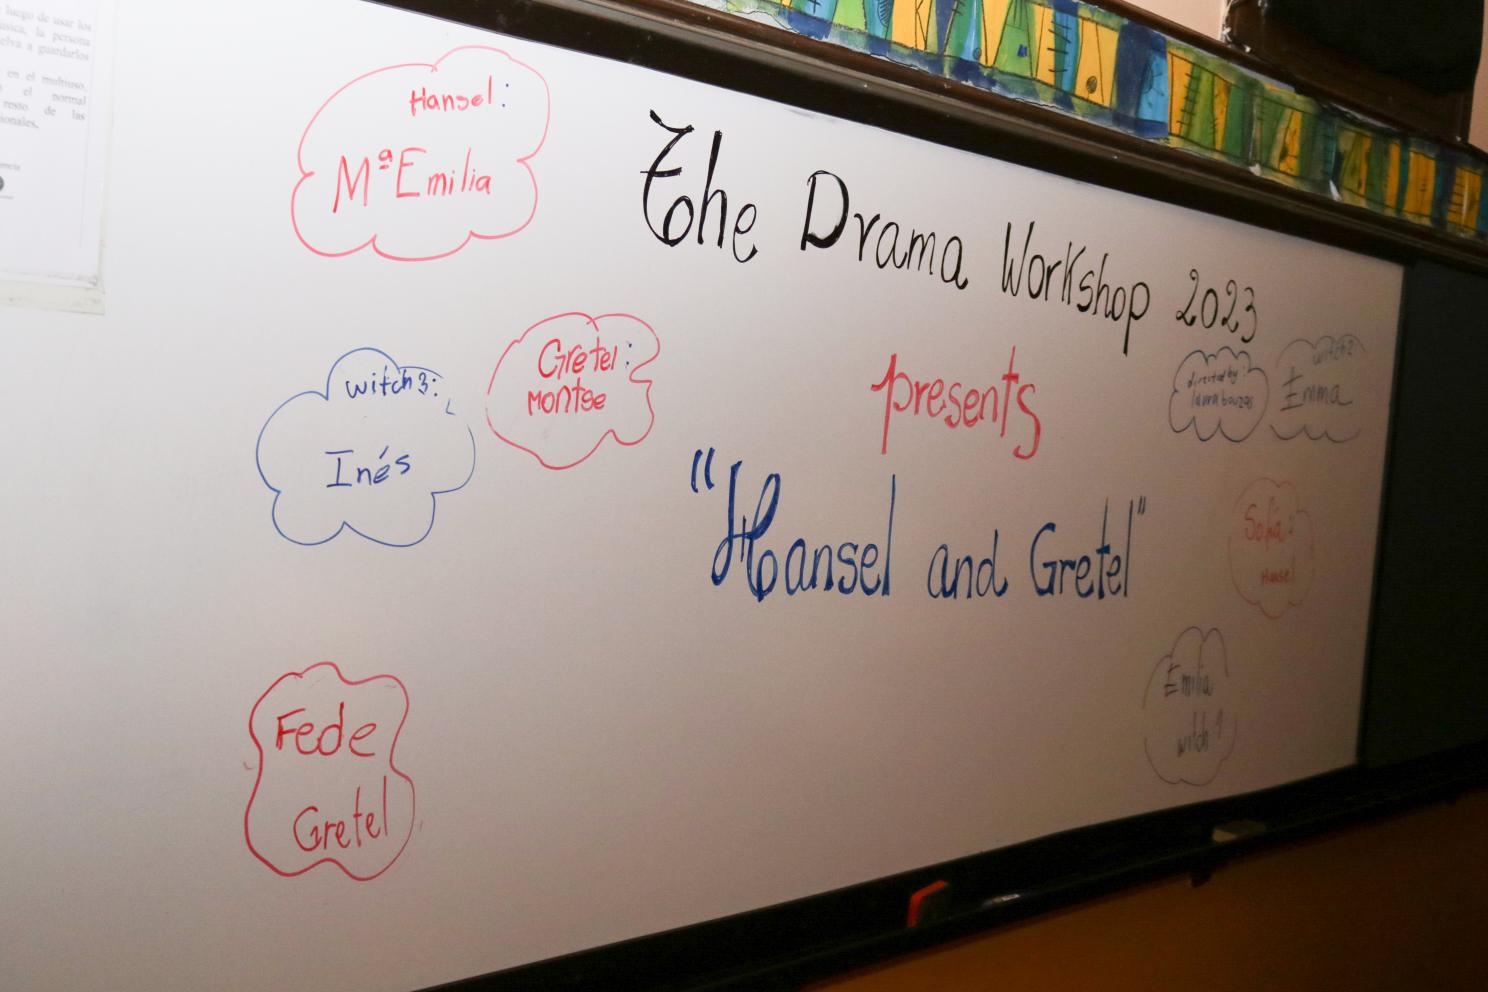 luego de usar los
la persona
a guardarlos
en el multiuso,
el normal
resto de las
Hansel:
Mª Emilia
The Drama Workshop 2023
presents
"Hansel and Gretel"
witch 3:
Inés
Gretel:
montse
directed by:
laura bouzas
witch 2
Emma
Sofía:
Hansel
Emilia
witch 1
Fede
Gretel